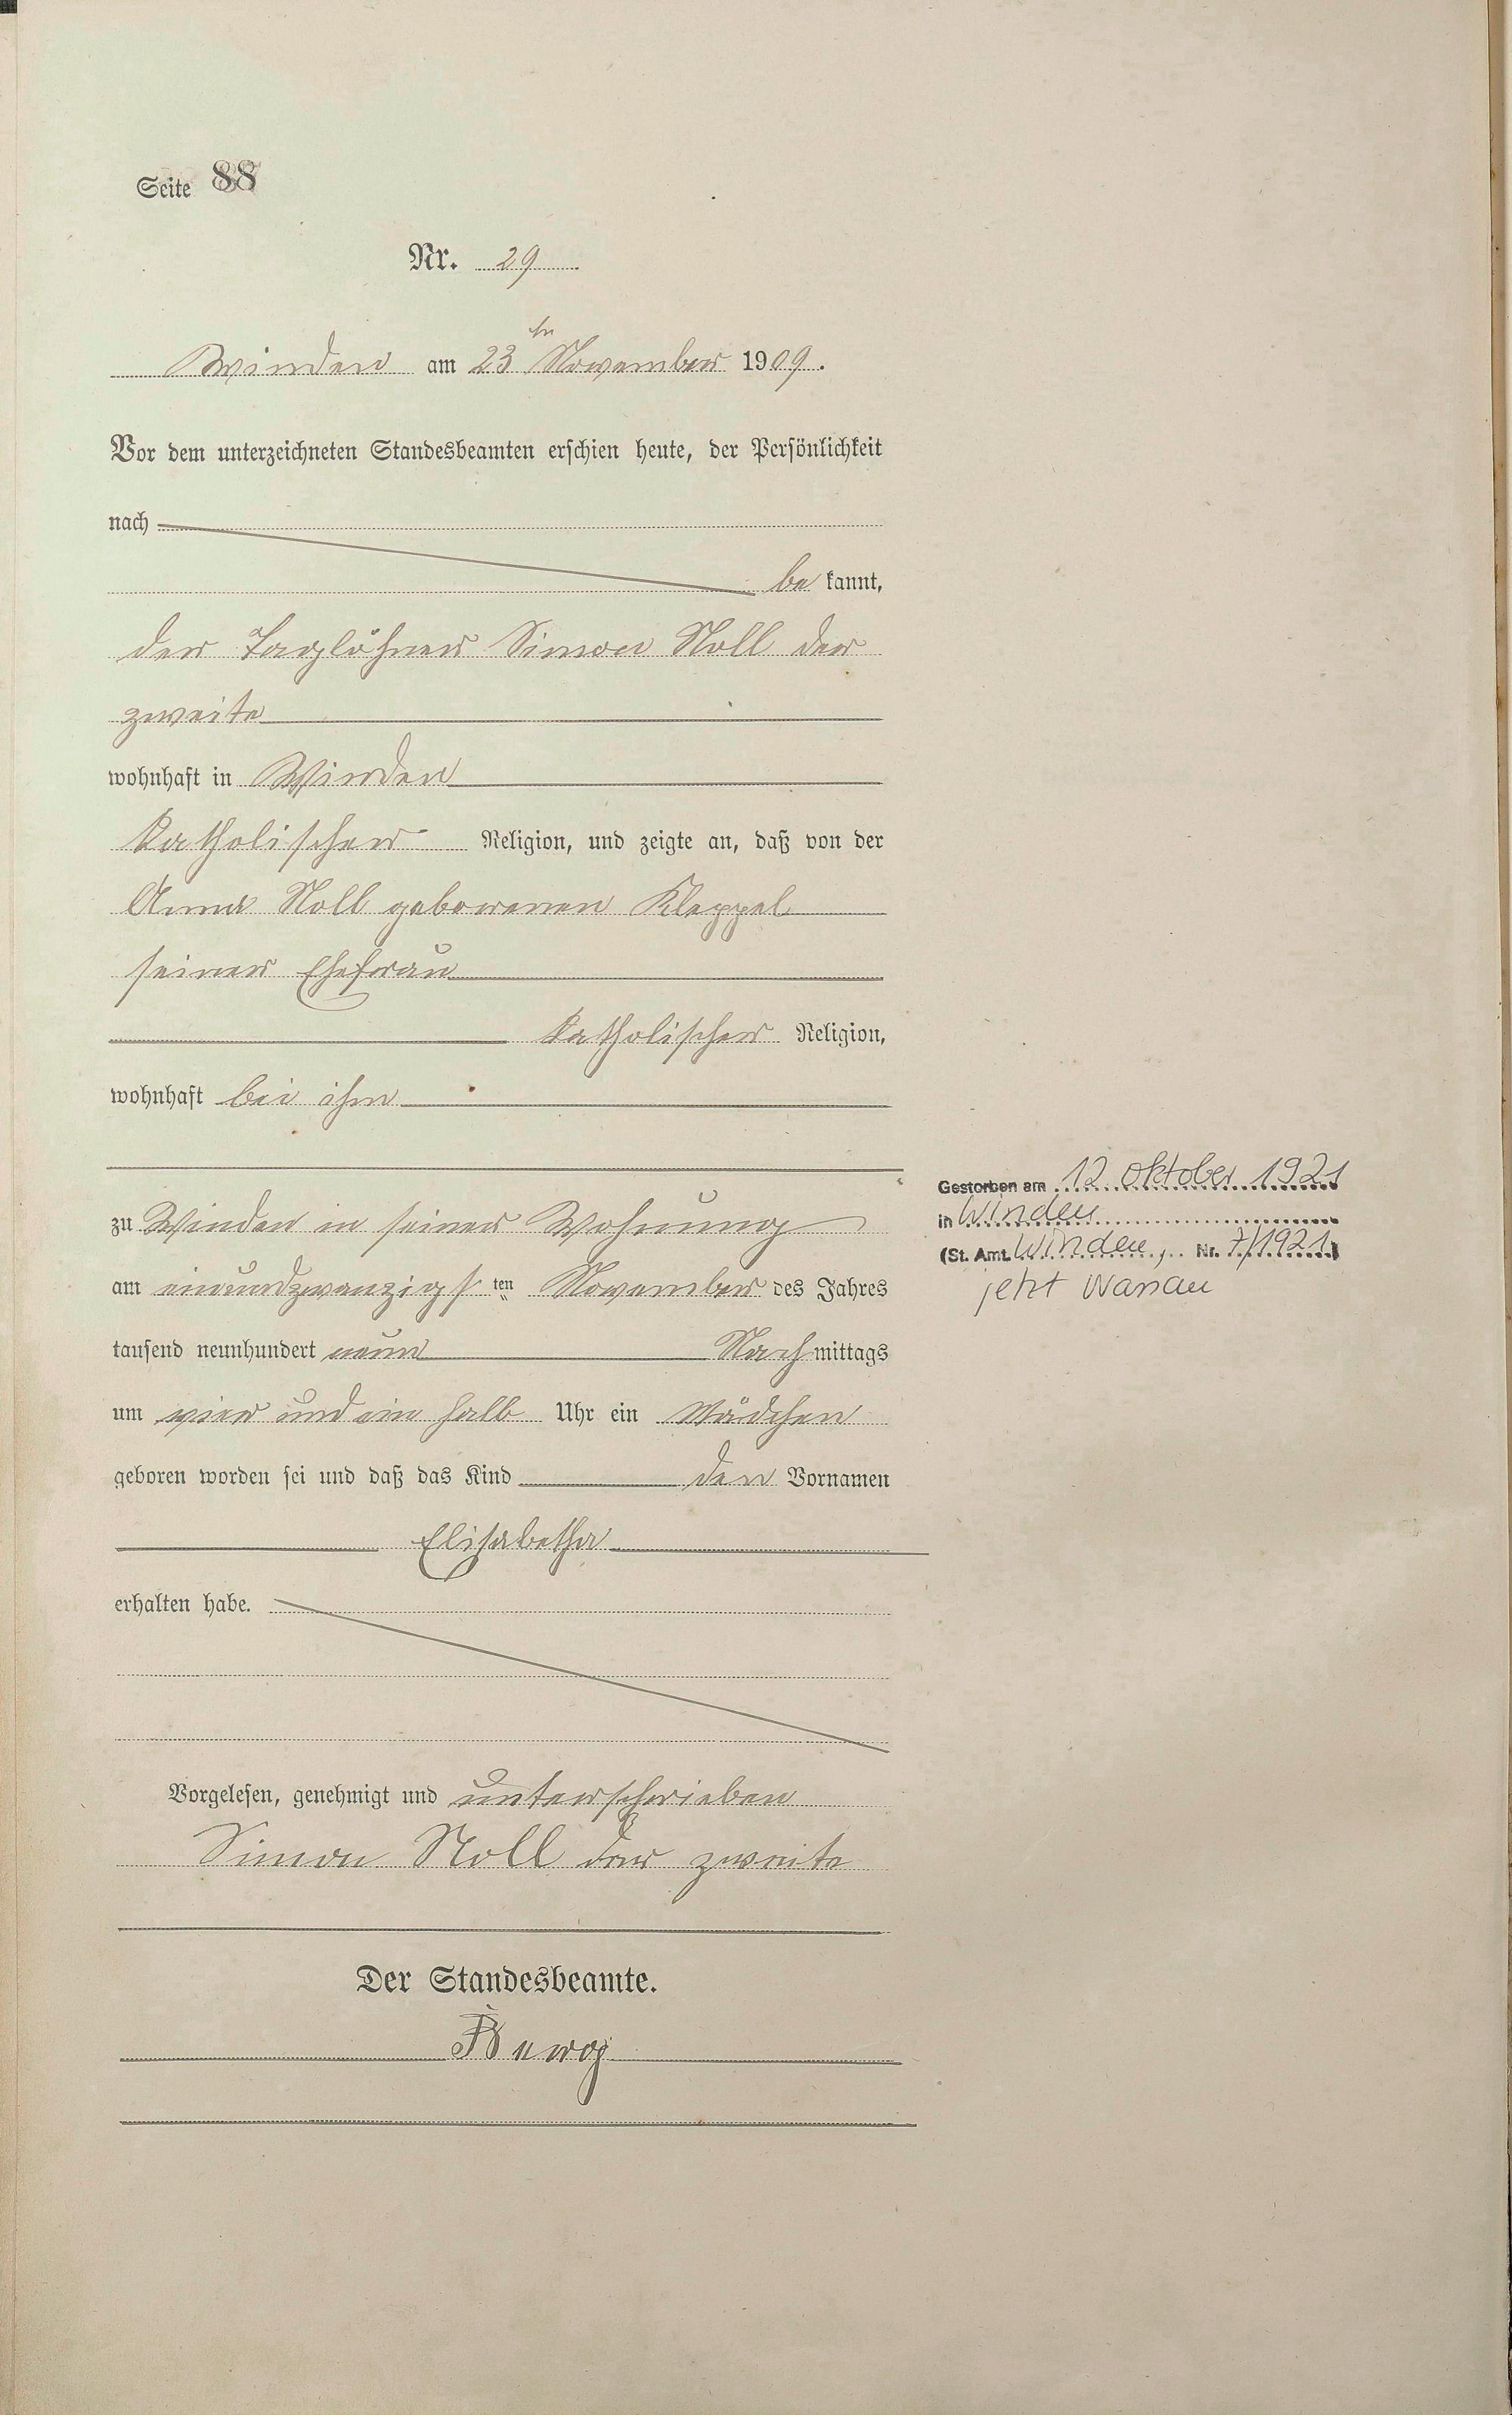 Seite 88
Nr. 29
Winden am 23ten November 1909.
Vor dem unterzeichneten Standesbeamten erschien heute, der Persönlichkeit
nach
be kannt,
der Taglöhner Simon Noll der
zweite
wohnhaft in Winden
katholischer Religion, und zeigte an, daß von der
Anna Noll geborenen Kleppel
seiner Ehefrau
katholischer Religion,
wohnhaft bei ihm
zu Winden in seiner Wohnung
am einundzwanzigsten November des Jahres
tausend neunhundert neun Nachmittags
um vier und ein halb Uhr ein Mädchen
geboren worden sei und daß das Kind den Vornamen
Elisabetha
erhalten habe.
Vorgelesen, genehmigt und unterschrieben
Simon Noll der zweite
Der Standesbeamte.
Gestorben am 12. Oktober 1921
in Winden
(St. Amt Winden, Nr. 7/1921)
jetzt